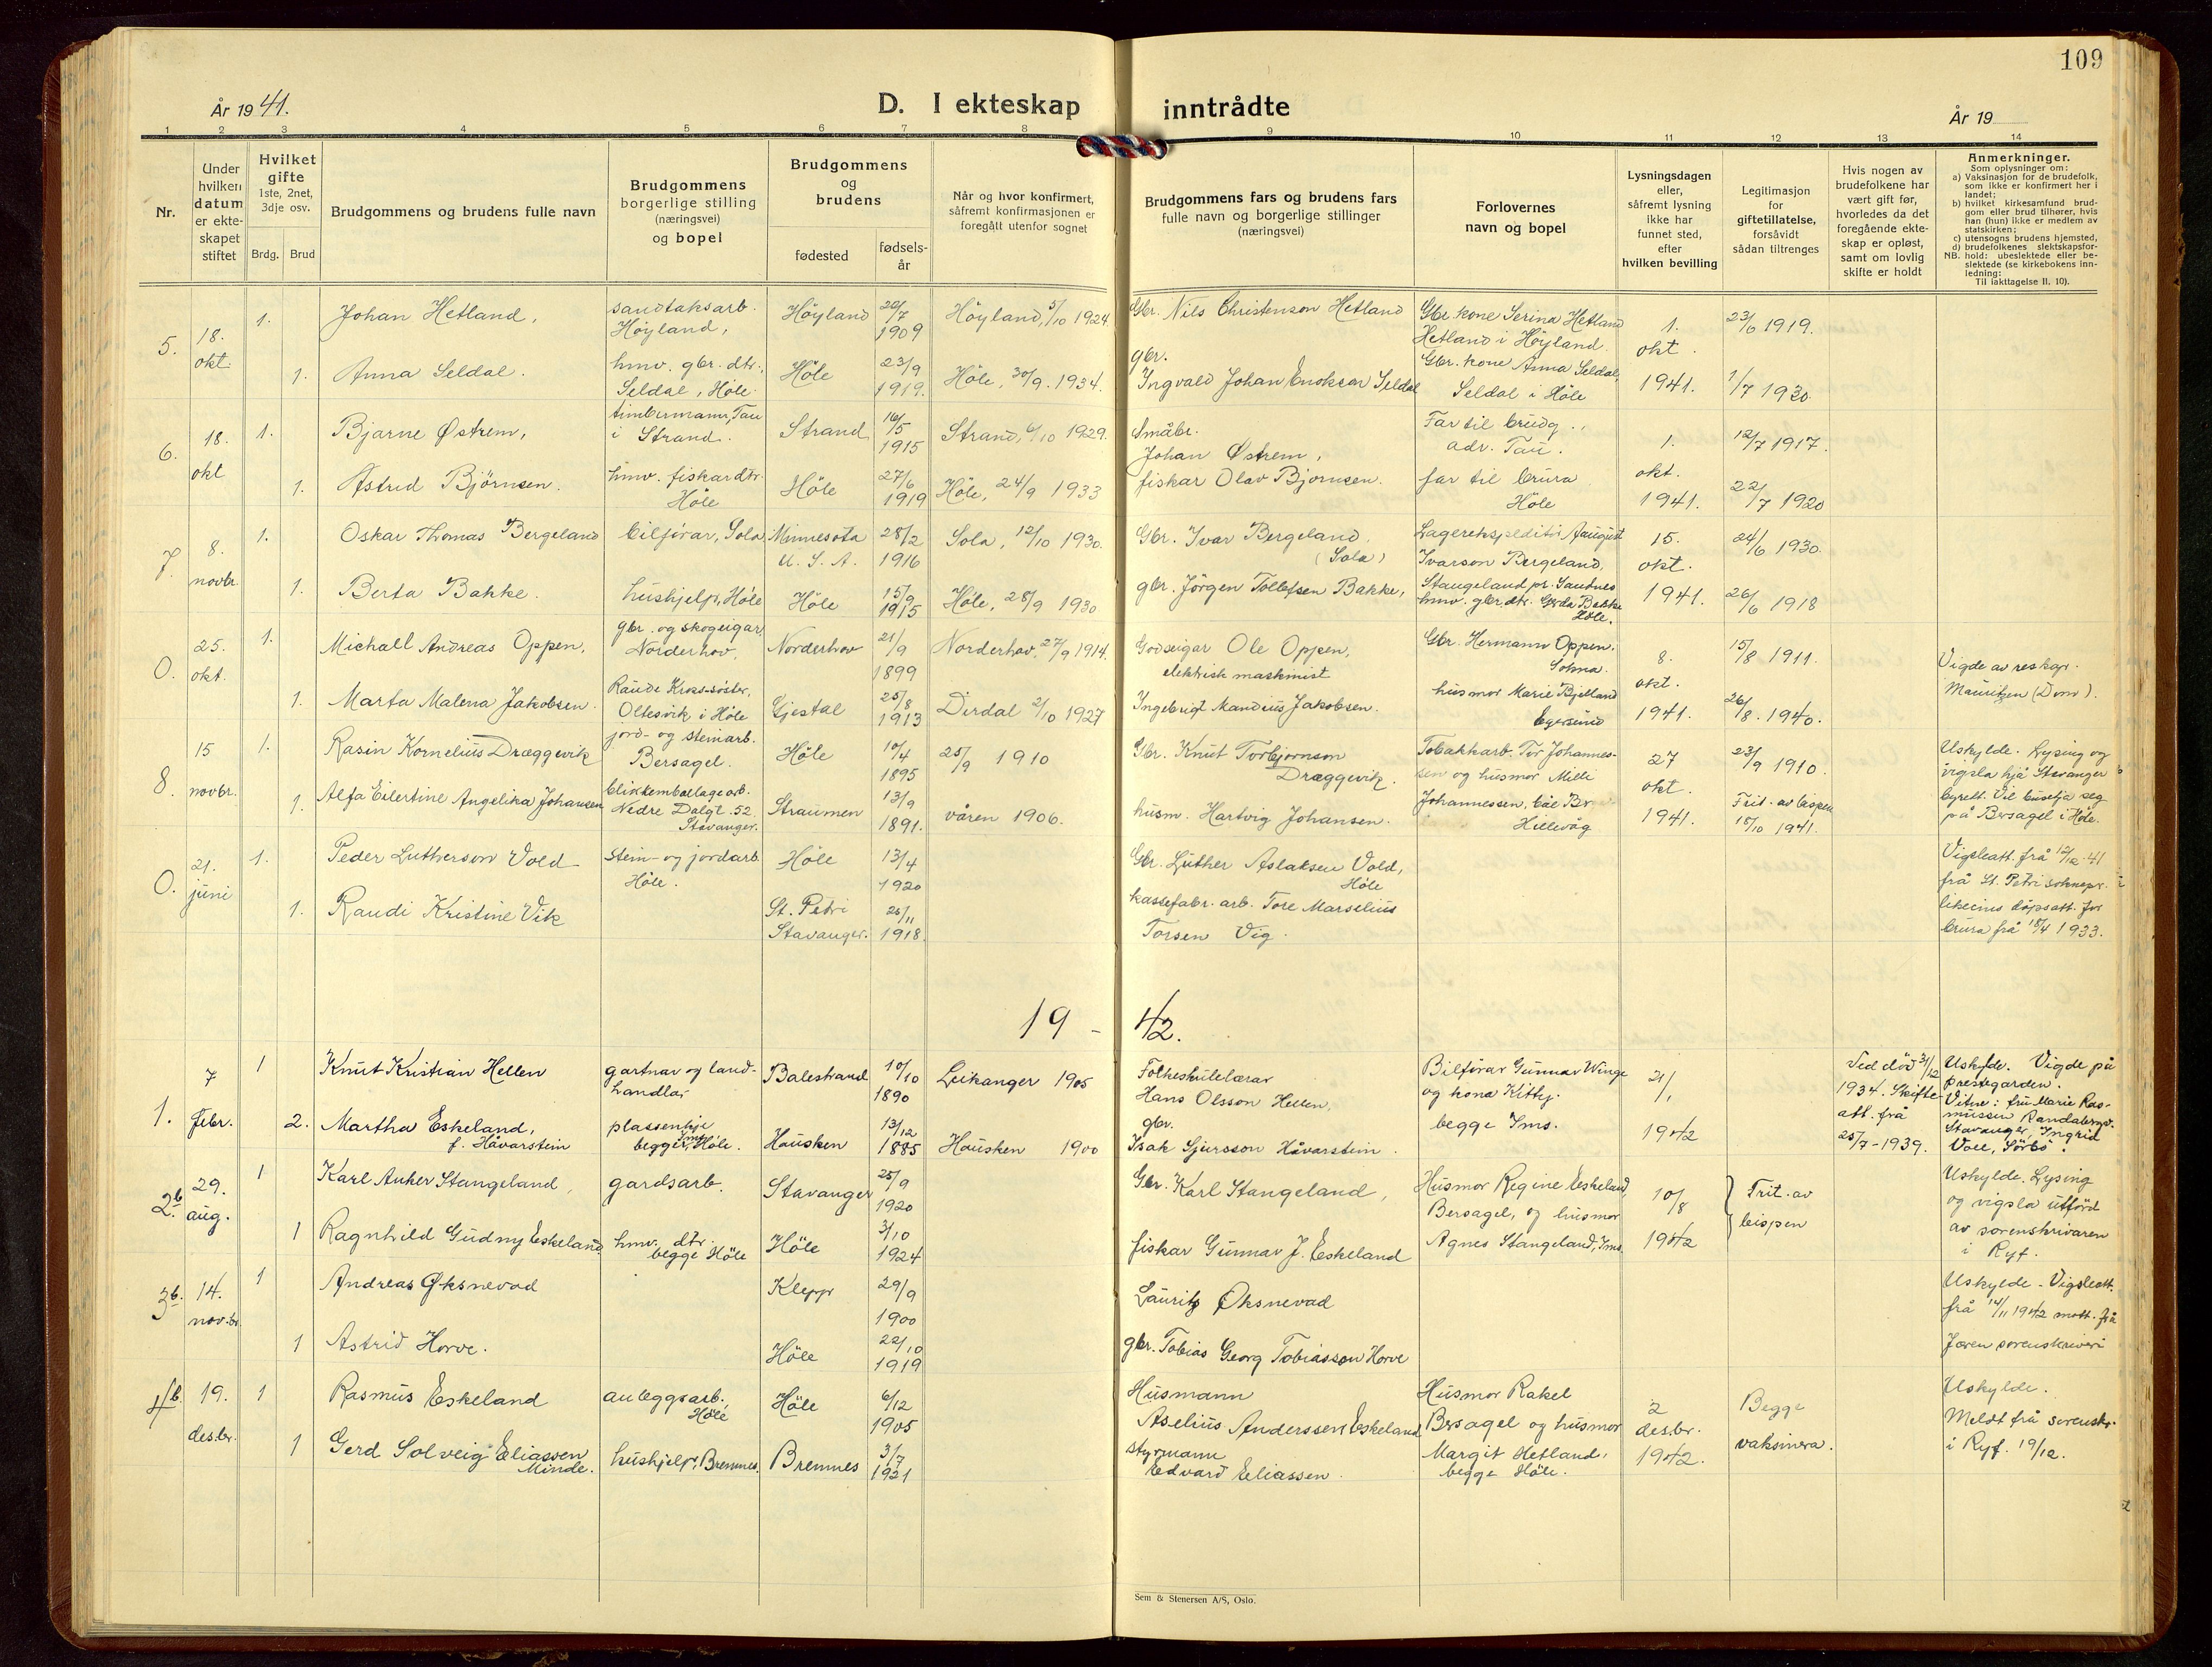 109
År 1941.
D. I ekteskap inntrådte
År 19
1 2 3 4 5 6 7 8 9 10 11 12 13 14
Nr.
Under
hvilken
datum
er ekte-
skapet
stiftet
Hvilket
gifte
1ste, 2net,
3dje osv.
Brdg. Brud
Brudgommens og brudens fulle navn
Brudgommens
borgerlige stilling
(næringsvei)
og bopel
Brudgommens
og
brudens
fødested
fødsels-
år
Når og hvor konfirmert,
såfremt konfirmasjonen er
foregått utenfor sognet
Brudgommens fars og brudens fars
fulle navn og borgerlige stillinger
(næringsvei)
Forlovernes
navn og bopel
Lysningsdagen
eller,
såfremt lysning
ikke har
funnet sted,
efter
hvilken bevilling
Legitimasjon
for
giftetillatelse,
forsåvidt
sådan tiltrenges
Hvis nogen av
brudefolkene har
vært gift før,
hvorledes da det
foregående ekte-
skap er opløst,
samt om lovlig
skifte er holdt
Anmerkninger.
Som oplysninger om:
a) Vaksinasjon for de brudefolk,
som ikke er konfirmert her i
landet;
b) hvilket kirkesamfund brud-
gom eller brud tilhører, hvis
han (hun) ikke er medlem av
statskirken;
c) utensogns brudens hjemsted,
d) brudefolkenes slektskapsfor-
NB. hold: ubeslektede eller be-
slektede (se kirkebokens inn-
ledning:
Til iakttagelse II. 10).
5. 18. okt. 1. Johan Hetland, sandtaksarb. Höyland, Höyland 20/7 1909 Höyland, 5/10 1924. Gbr. Nils Christenson Hetland Gbr. kone Serina Hetland Hetland i Höyland. 1. okt. 1941. 23/6 1919.
1. Anna Seldal. hmv. gbr. dtr., Seldal, Höle. Höle 23/9 1919. Höle, 30/9. 1934. gbr. Ingvald Johan Enoksen Seldal Gbr. kone Anna Seldal, Seldal i Höle 1/7 1930
6. 18. okt 1. Bjarne Østrem, timbermann, Tau i Strand. Strand 16/5 1915 Strand, 6/10 1929. Småbr. Johan Østrem, Far til brudg., adr. Tau. 1. okt. 1941. 12/7 1917.
1. Astrid Björnsen. hmv. fiskardtr. Höle Höle 27/6 1919 Höle, 24/9 1933 fiskar Olav Bjornsen. far til brura Höle 22/7 1920
7. 8. novbr. 1. Oskar Thomas Bergeland bilförar, Sola Minnesota U. S. A. 28/2 1916 Sola, 12/10 1930. Gbr. Ivar Bergeland. (Sola) Lagerekspeditör August Ivarson Bergeland. Stangeland pr. Sandnes 15. okt. 1941. 24/6 1930.
1. Berta Bakke. hushjelp, Höle Höle 15/9 1915 Höle, 28/9 1930 gbr. Jörgen Tollefsen Bakke, hmv. gbr. dtr. Gerda Bakke Höle. 26/6 1918
0. 25. okt. 1. Michall Andreas Oppen, gbr. og skogeigar, Norderhov. Norderhov 21/9 1899 Norderhov, 27/9 1914. Godseigar Ole Oppen, Gbr. Hermann Oppen. Sokna. 8. okt. 1941. 15/8 1911. Vigde av res kap. Mauritzen (Dom).
1. Marta Malena Jakobsen. Raude Kross-söster, Oltesvik i Höle Gjestal 25/8 1913 Dirdal 2/10 1927 elektrisk maskinist Ingebrigt Mandius Jakobsen. husmor Marie Bjelland Egersund 26/8. 1940.
8. 15 novbr. 1. Rasin Kornelius Dræggevik jord- og steinarb. Bersagel. Höle 10/4 1895 25/9 1910 Gbr. Knut Torbjornson Dræggevik. Tobakkarb. Tor Johannes- sen og husmor Milli 27 okt. 1941. 23/9 1910. Uskylde. Lysing og vigsla hjå Stavanger byrett. Vil busetja seg på Bersagel i Höle.
1. Alfa Eilertine Angelika Johansen blikkemballagearb. Nedre Dalgt. 52. Stavanger. Straumen 13/9 1891. våren 1906. husm. Hartvig Johansen. Johannessen, Hillevåg Frit. av bispen 15/10 1941.
0. 21. juni 1. Peder Lutherson Vold stein- og jordarb. Höle. Höle 13/4 1920 Gbr. Luther Aslaksen Vold, Höle Vigsleatt. frå 12/12-41 frå St. Petri soknepr. likeeins dåpsatt. for brura frå 18/4 1933.
1. Randi Kristine Vik St. Petri Stavanger. 25/11 1918. kassefabr. arb. Tore Marselius Torsen Vig.
19 - 42.
1. 7 febr. 1 Knut Kristian Hellen gartnar og land- handlar Balestrand 10/10 1890 Leikanger 1905 Folkeskulelærar Hans Olsson Hellen, Bilförar Gunnar Winge og kona Kitty. begge Ims. 21/1 1942 Ved död 31/12 1934. Skifte- att. frå 25/7-1939. Uskylde. Vigde på prestegarden. Vitne: fru Marie Ras- mussen Randabergv. Stavanger, Ingrid Voll, Sörbö.
2. Martha Eskeland, f. Håvarstein plassenkje begge Ims, Höle. Hausken 13/12 1885 Hausken 1900 gbr. Isak Sjursson Håvarstein.
2b 29. aug. 1 Karl Anker Stangeland, gardsarb. Stavanger 25/9 1920 Gbr. Karl Stangeland, Husmor Regine Eskeland, Bersagel, og husmor 10/8 1942 Frit. av bispen Uskylde. Lysing og vigsla utförd av sorenskrivaren i Ryf.
1 Ragnhild Gudny Eskeland hmv. dtr. begge Höle Höle 3/10 1924 fiskar Gunnar J. Eskeland Agnes Stangeland, Ims.
3b. 14. nov.br. 1 Andreas Øksnevad Klepp 29/9 1900 Lauritz Øksnevad Uskylde - Vigsleatt. frå 14/11 1942 mott. frå Jæren sorenskriveri
1 Astrid Horve. Höle 22/10 1919 gbr. Tobias Georg Tobiasson Horve
4b. 19. des.br. 1 Rasmus Eskeland anleggsarb. Höle Höle 6/12 1905 Husmann Aselius Anderssen Eskeland Husmor Rakel Bersagel og husmor 2 des.br. 1942. Begge vaksinera. Uskylde. Meldt frå sorenskr. i Ryf. 19/12.
1 Gerd Solveig Eliassen Minde. hushjelp, Bremnes. Bremnes 3/7 1921 styrmann Edvard Eliassen. Margit Hetland, begge Höle.
Sem & Stenersen A/S, Oslo.